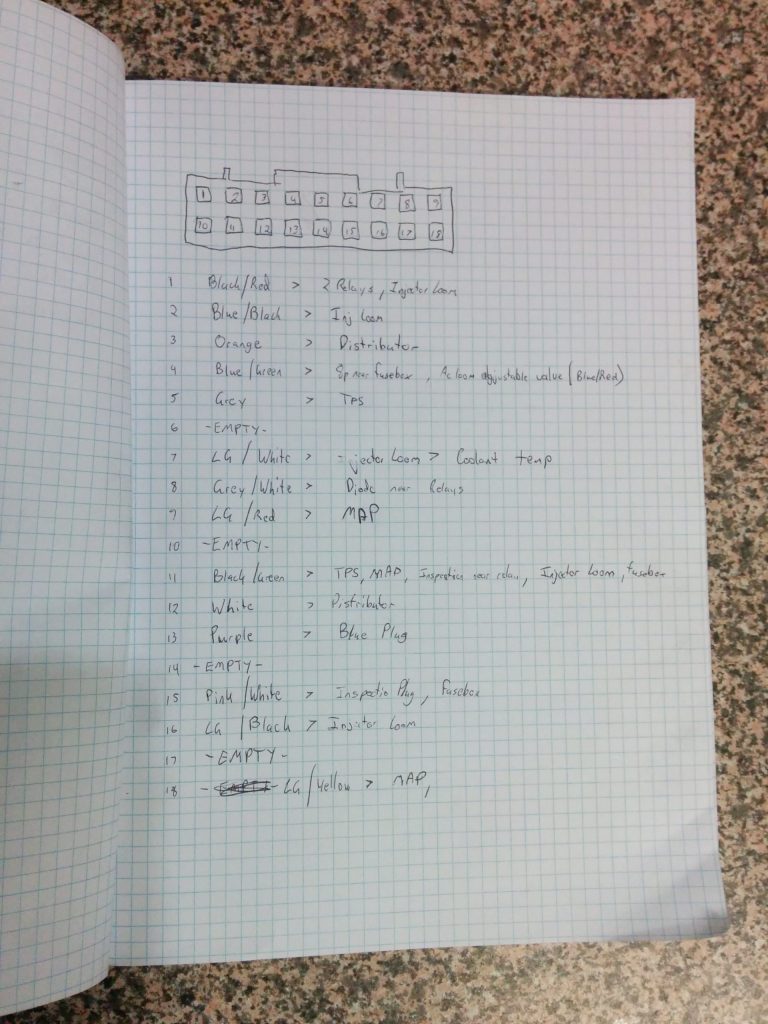 1 2 3 4 5 6 7 8 9
10 11 12 13 14 15 16 17 18
1 Black/Red > 2 Relays, Injector Loom
2 Blue/Black > Inj Loom
3 Orange > Distributor
4 Blue/Green > near fusebox, Ac loom value (Blue/Red)
5 Grey > TPS
6 -EMPTY-
7 LG/White > Loom > Coolant temp
8 Grey/White > Diode near Relays
9 LG/Red > MAP
10 -EMPTY-
11 Black/Green > TPS, MAP, near relay, Injector Loom, fusebox
12 White > Distributor
13 Purple > Blue Plug
14 -EMPTY-
15 Pink/White > Plug, Fusebox
16 LG/Black > Loom
17 -EMPTY-
18 - LG/Yellow > MAP,